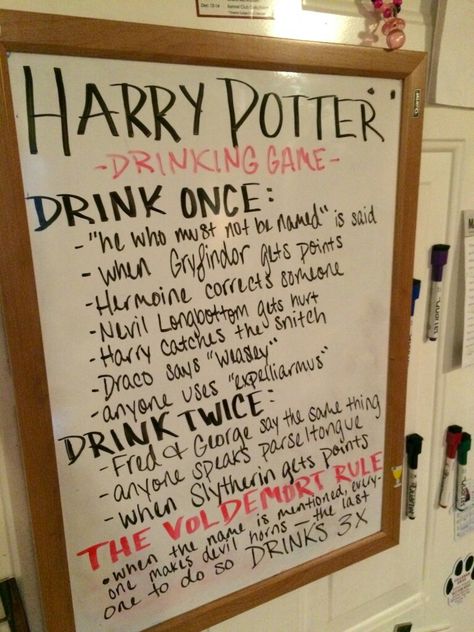 HARRY POTTER
-DRINKING GAME-
DRINK ONCE:
- "he who must not be named" is said
- when Gryfindor gets points
- Hermoine corrects someone
- Nevil Longbottom gets hurt
- Harry catches the snitch
- Draco says "weasley"
- anyone uses "expelliarmus"
DRINK TWICE:
- Fred & George say the same thing
- anyone speaks parseltongue
- when Slytherin gets points
THE VOLDEMORT RULE
• when the name is mentioned, every-
one makes devil horns – the last
one to do so DRINKS 3X